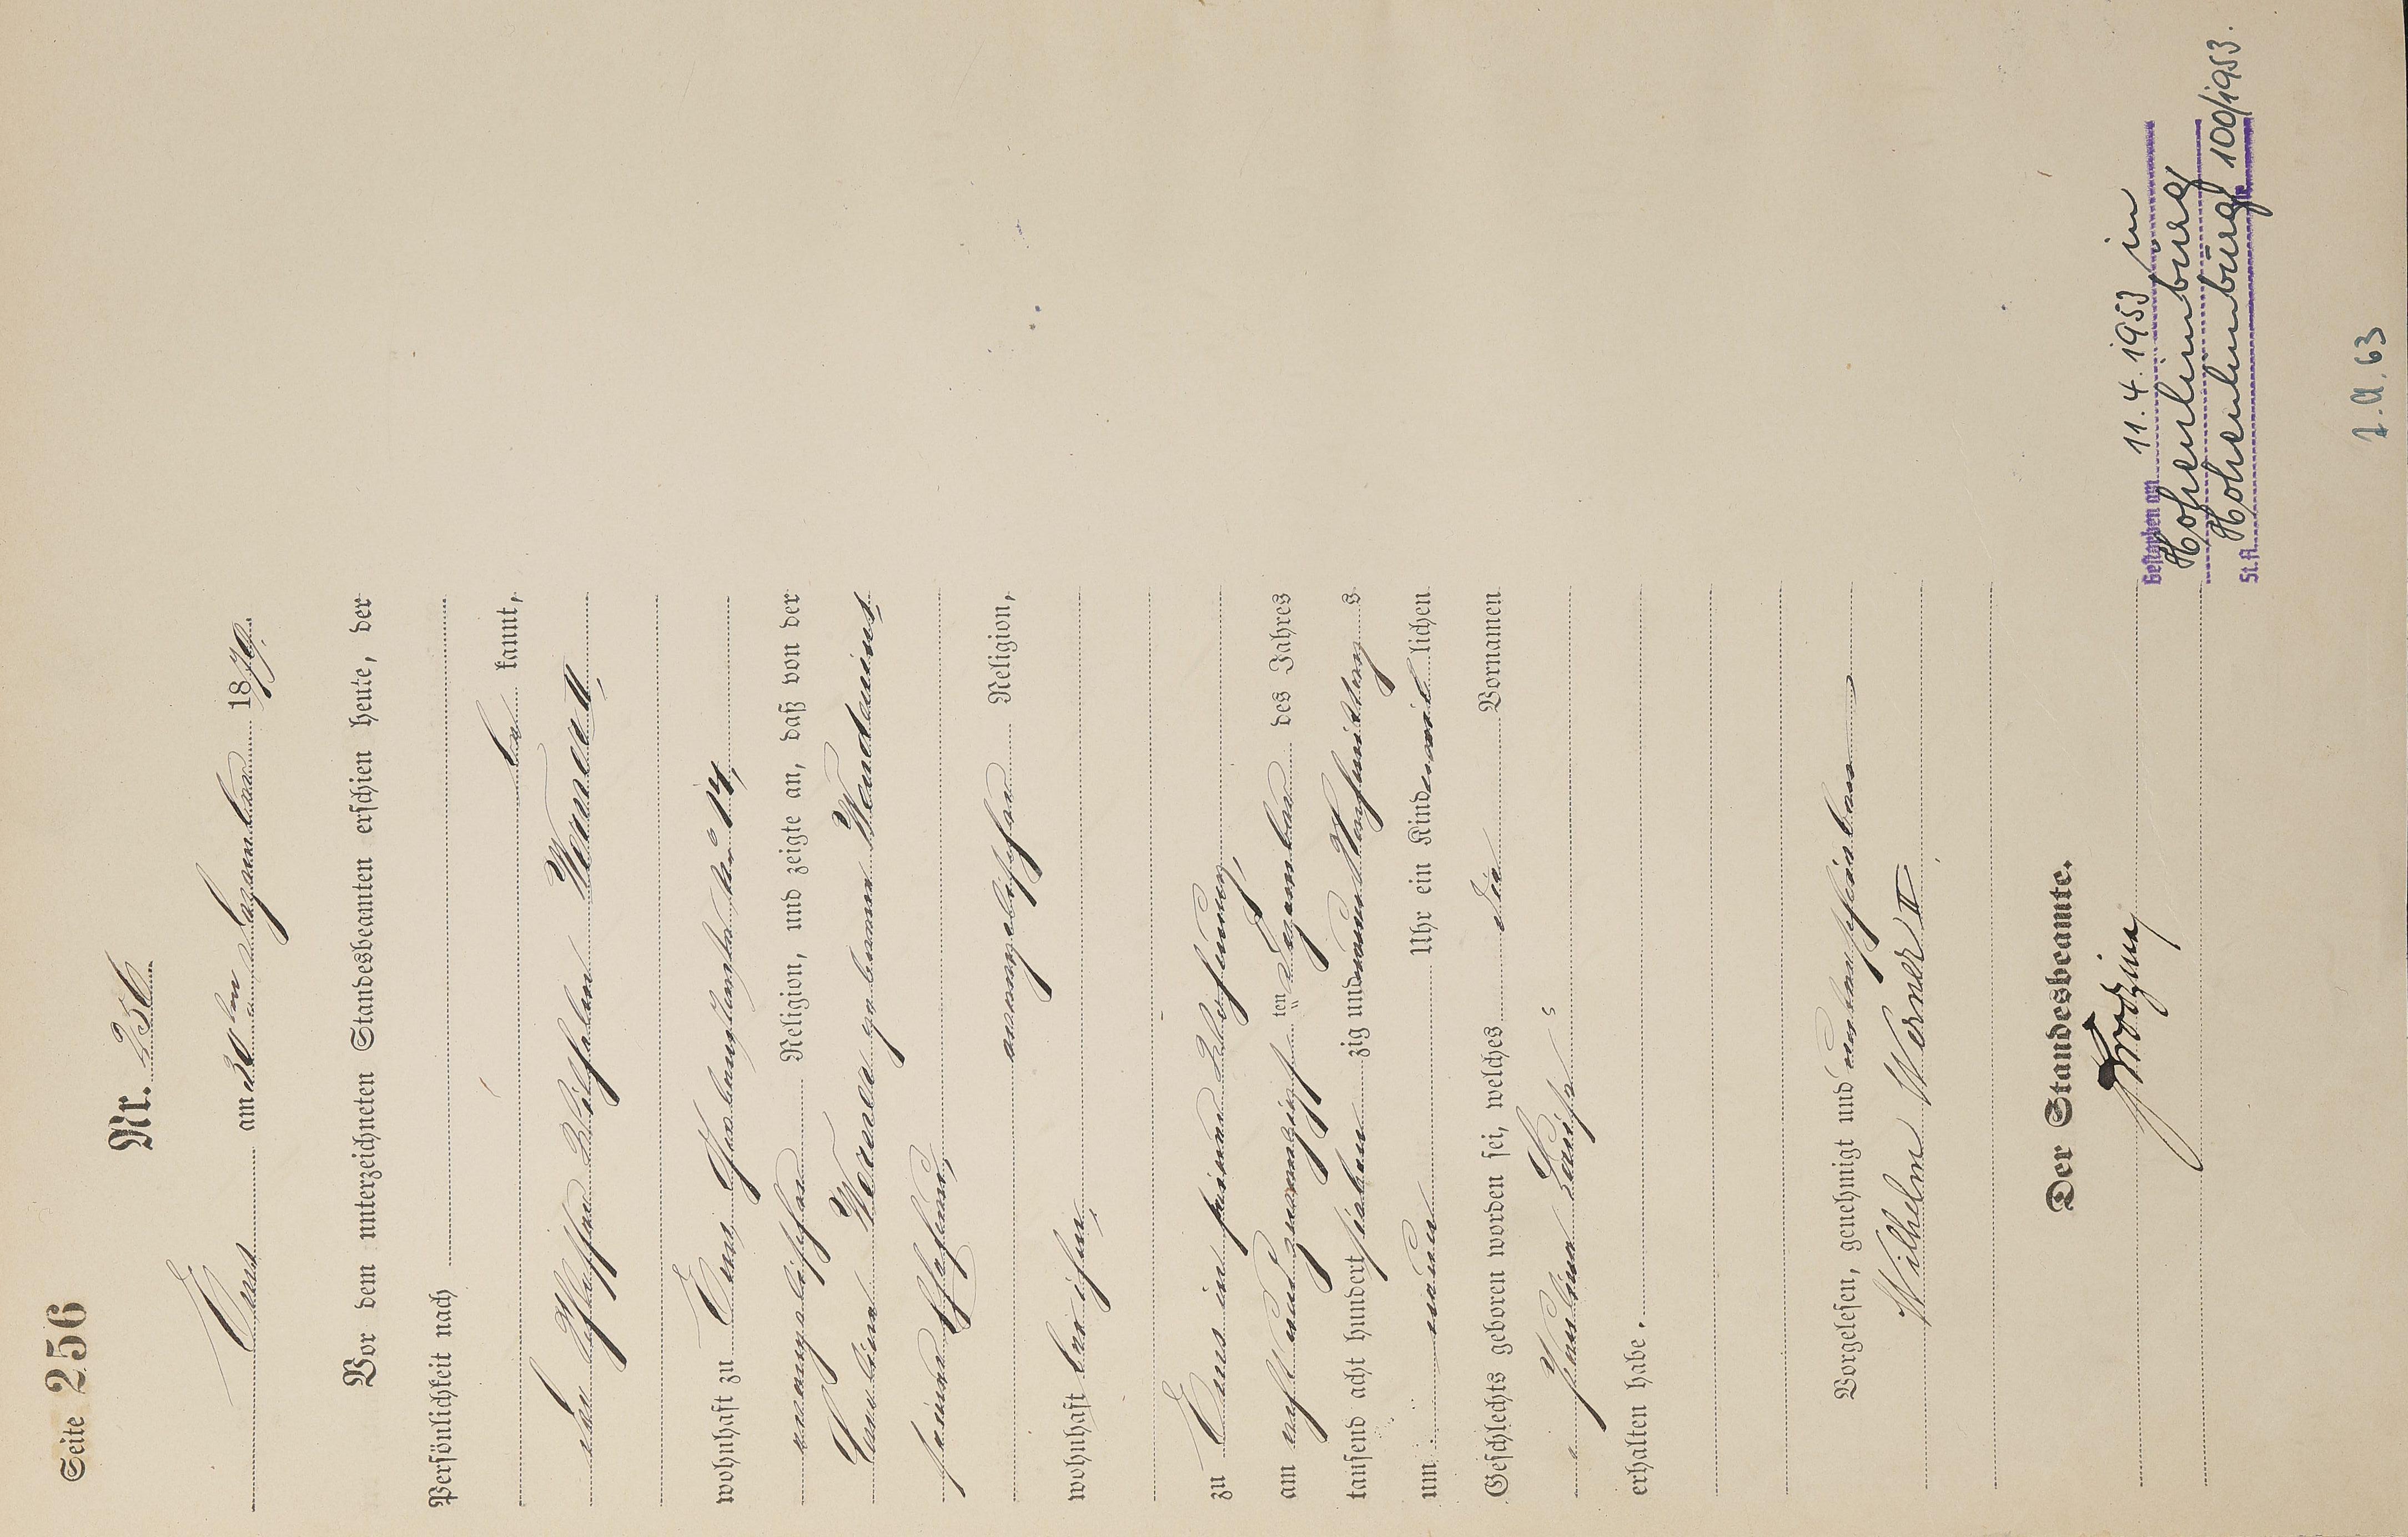 Seite 256
Nr. 256
Ems am 30ten Dezember 1879.
Vor dem unterzeichneten Standesbeamten erschien heute, der
Persönlichkeit nach
be kannt,
der Wilhelm Werner II,
wohnhaft zu Ems, N° 14,
evangelischer Religion, und zeigte an, daß von der
Werner geborenen
seiner Ehefrau,
evangelischer Religion,
wohnhaft bei ihm,
zu Ems in seiner Wohnung,
am acht und zwanzigsten Dezember des Jahres
tausend acht hundert siebenzig und neun Nachmittags
um neun Uhr ein Kind weiblichen
Geschlechts geboren worden sei, welches die Vornamen
Pauline Luise
erhalten habe.
Vorgelesen, genehmigt und unterschrieben
Wilhelm Werner II
Der Standesbeamte.
Gestorben am 11.4.1953 in
Hohenlimburg
St.A. Hohenlimburg 100/1953.